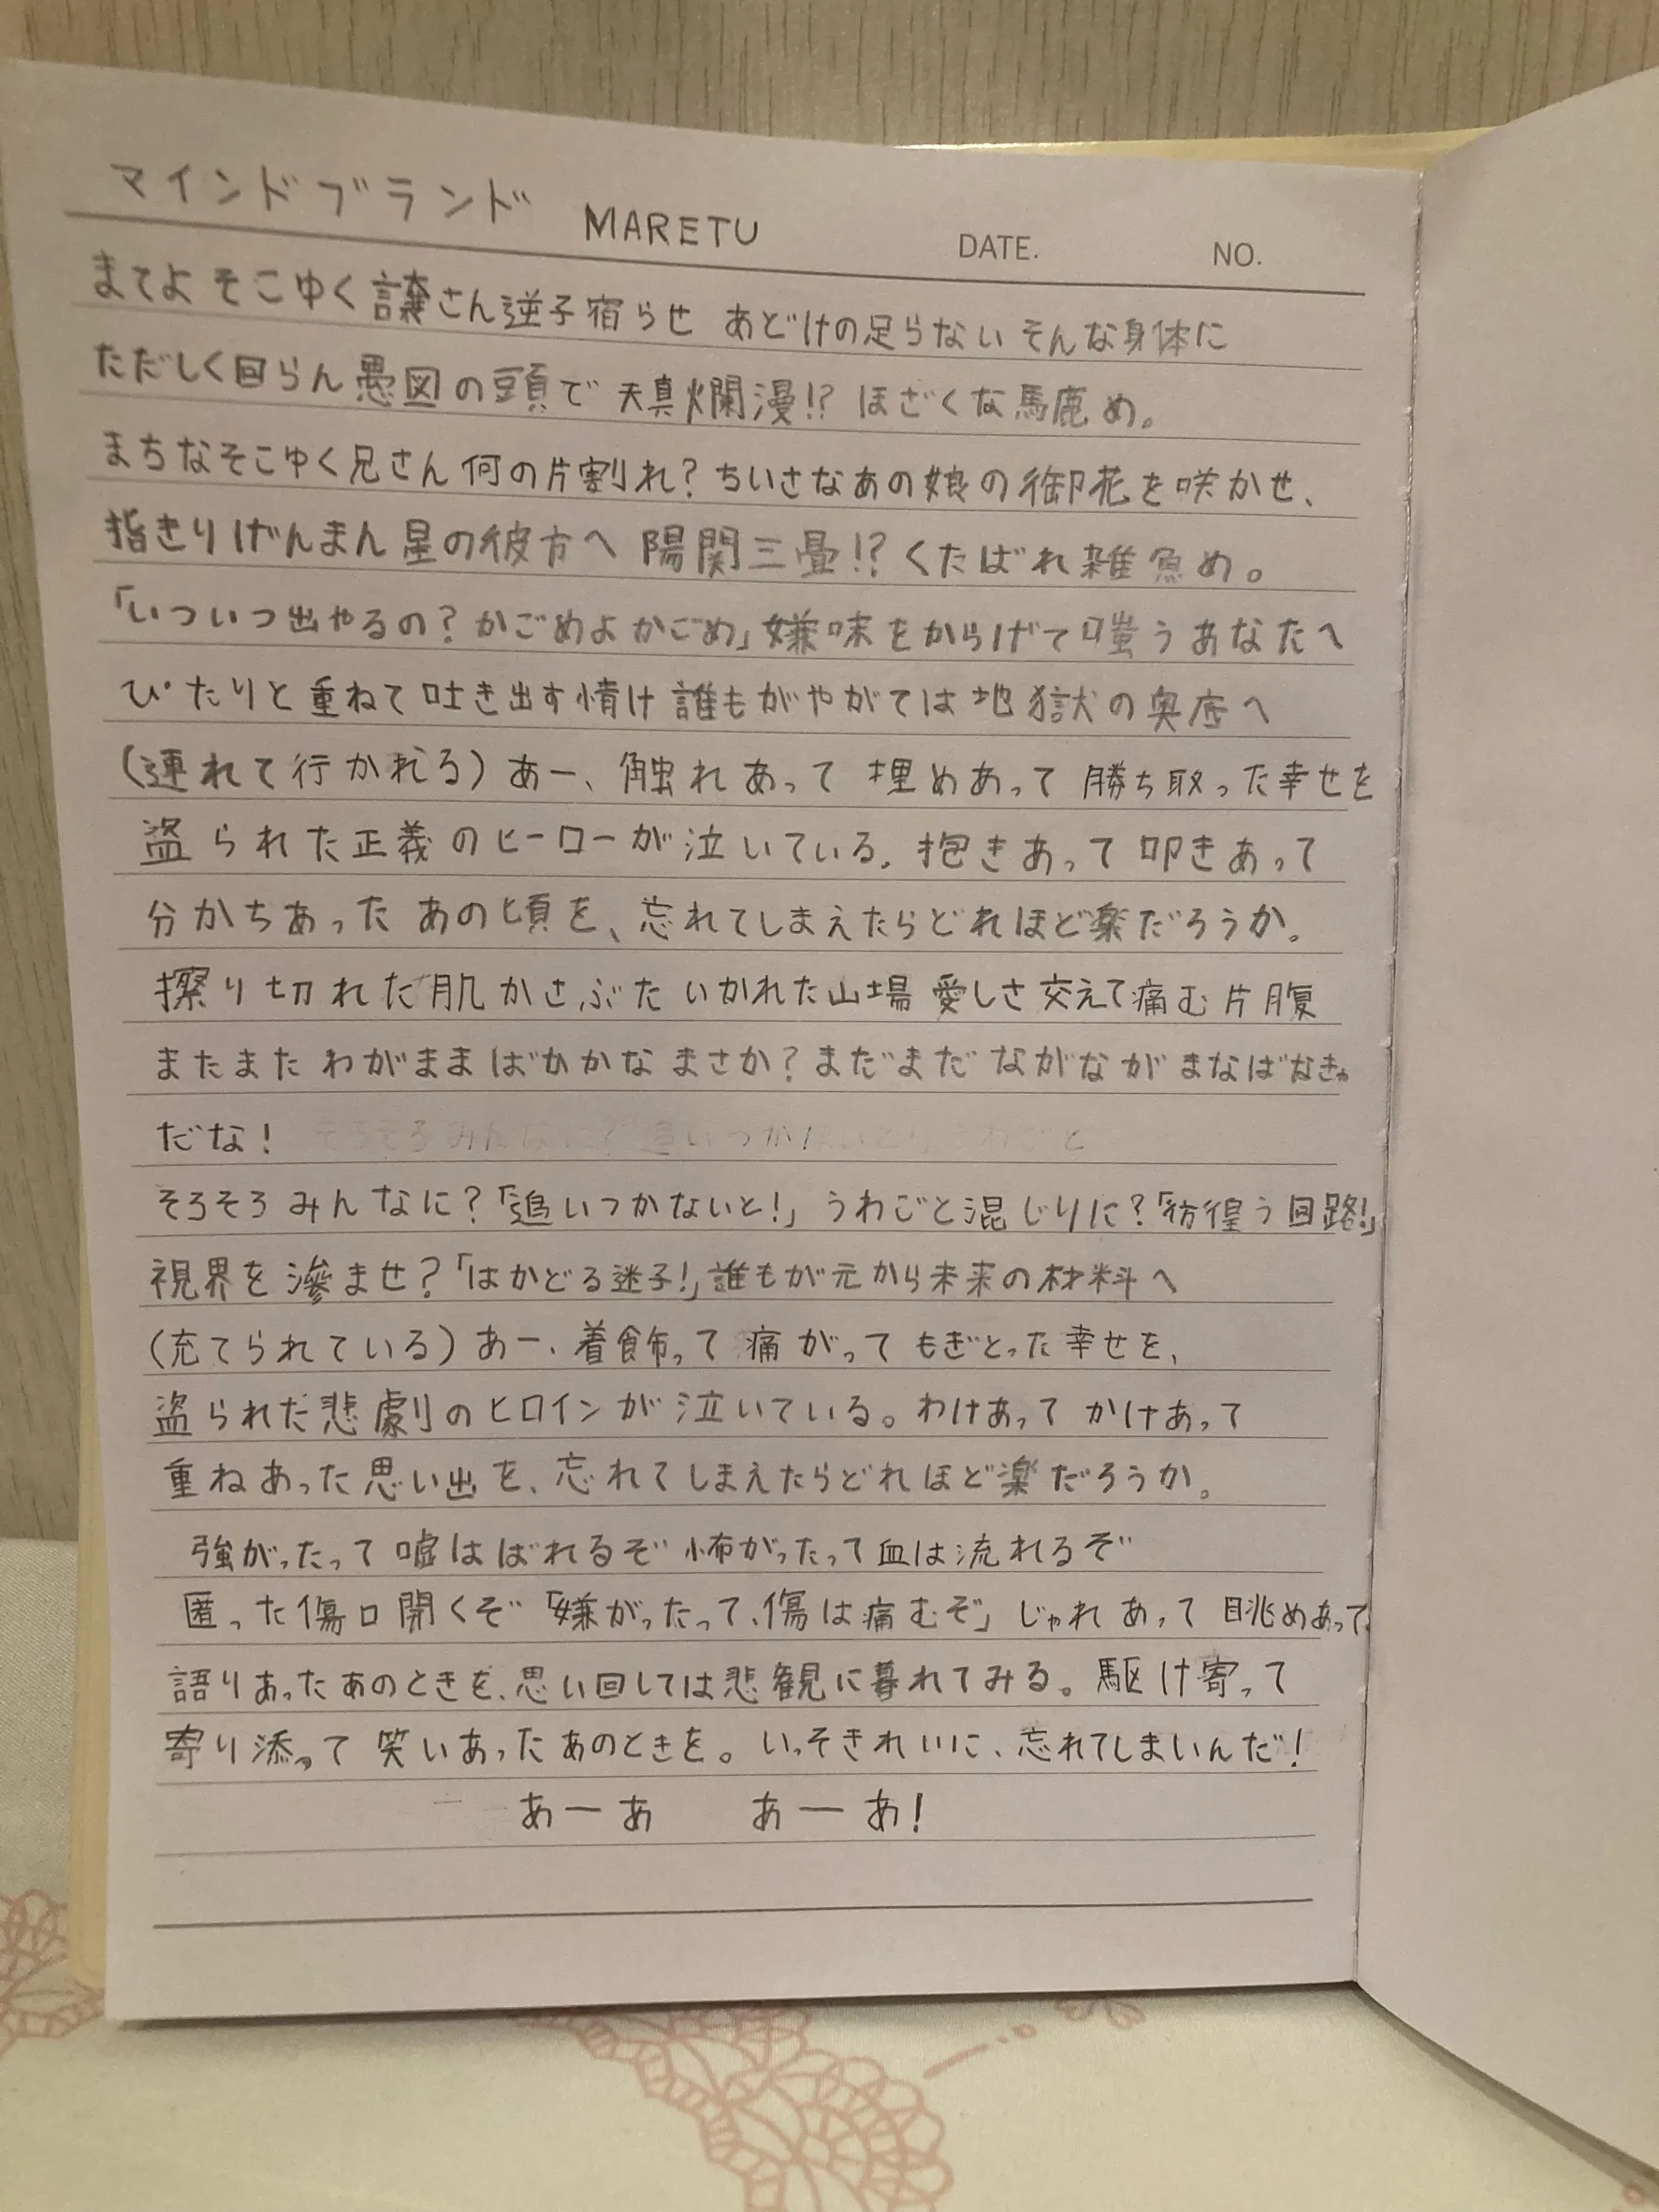 マインドブランド MARETU DATE. NO.
まてよ そこゆく 譲さん逆子宿らせ あどけの足らない そんな身体に
ただしく回らん愚図の頭で 天真爛漫!? ほざくな馬鹿め。
まちなそこゆく兄さん 何の片割れ? ちいさなあの娘の御花を咲かせ、
指きりげんまん 星の彼方へ 陽関三畳!? くたばれ雑魚め。
「いついつ出やるの? かごめよ かごめ」嫌味をからげて嗤うあなたへ
ぴたりと重ねて吐き出す情け 誰もがやがては地獄の奥底へ
(連れて行かれる) あー、触れあって 埋めあって 勝ち取った幸せを
盗られた正義のヒーローが泣いている。抱きあって 叩きあって
分かちあった あの頃を、忘れてしまえたらどれほど楽だろうか。
擦り切れた肌かさぶた いかれた山場 愛しさ交えて痛む片腹
またまた わがまま ばかかな まさか? まだまだ ながなが まなばなきゃ
だな!
そろそろ みんなに?「追いつかないと!」 うわごと混じりに?「彷徨う回路!」
視界を滲ませ?「はかどる迷子!」誰もが元から未来の材料へ
(充てられている) あー、着飾って 痛がって もぎとった幸せを、
盗られた悲劇のヒロインが泣いている。わけあって かけあって
重ねあった思い出を、忘れてしまえたらどれほど楽だろうか。
強がったって嘘はばれるぞ 怖がったって血は流れるぞ
匿った傷口開くぞ「嫌がったって、傷は痛むぞ」じゃれあって 眺めあって
語りあったあのときを、思い回しては悲観に暮れてみる。駆け寄って
寄り添って 笑いあったあのときを。いっそきれいに、忘れてしまいんだ!
あーあ あーあ!